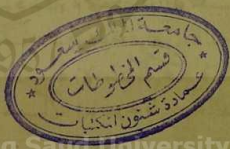 جامعة الملك سعود
قسم المخطوطات
عمادة شئون المكتبات
Saud University